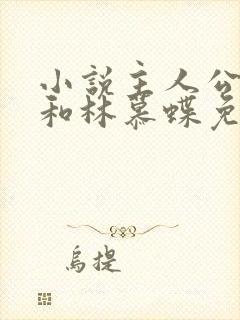 小说主人公
和林慕蝶免
乌提